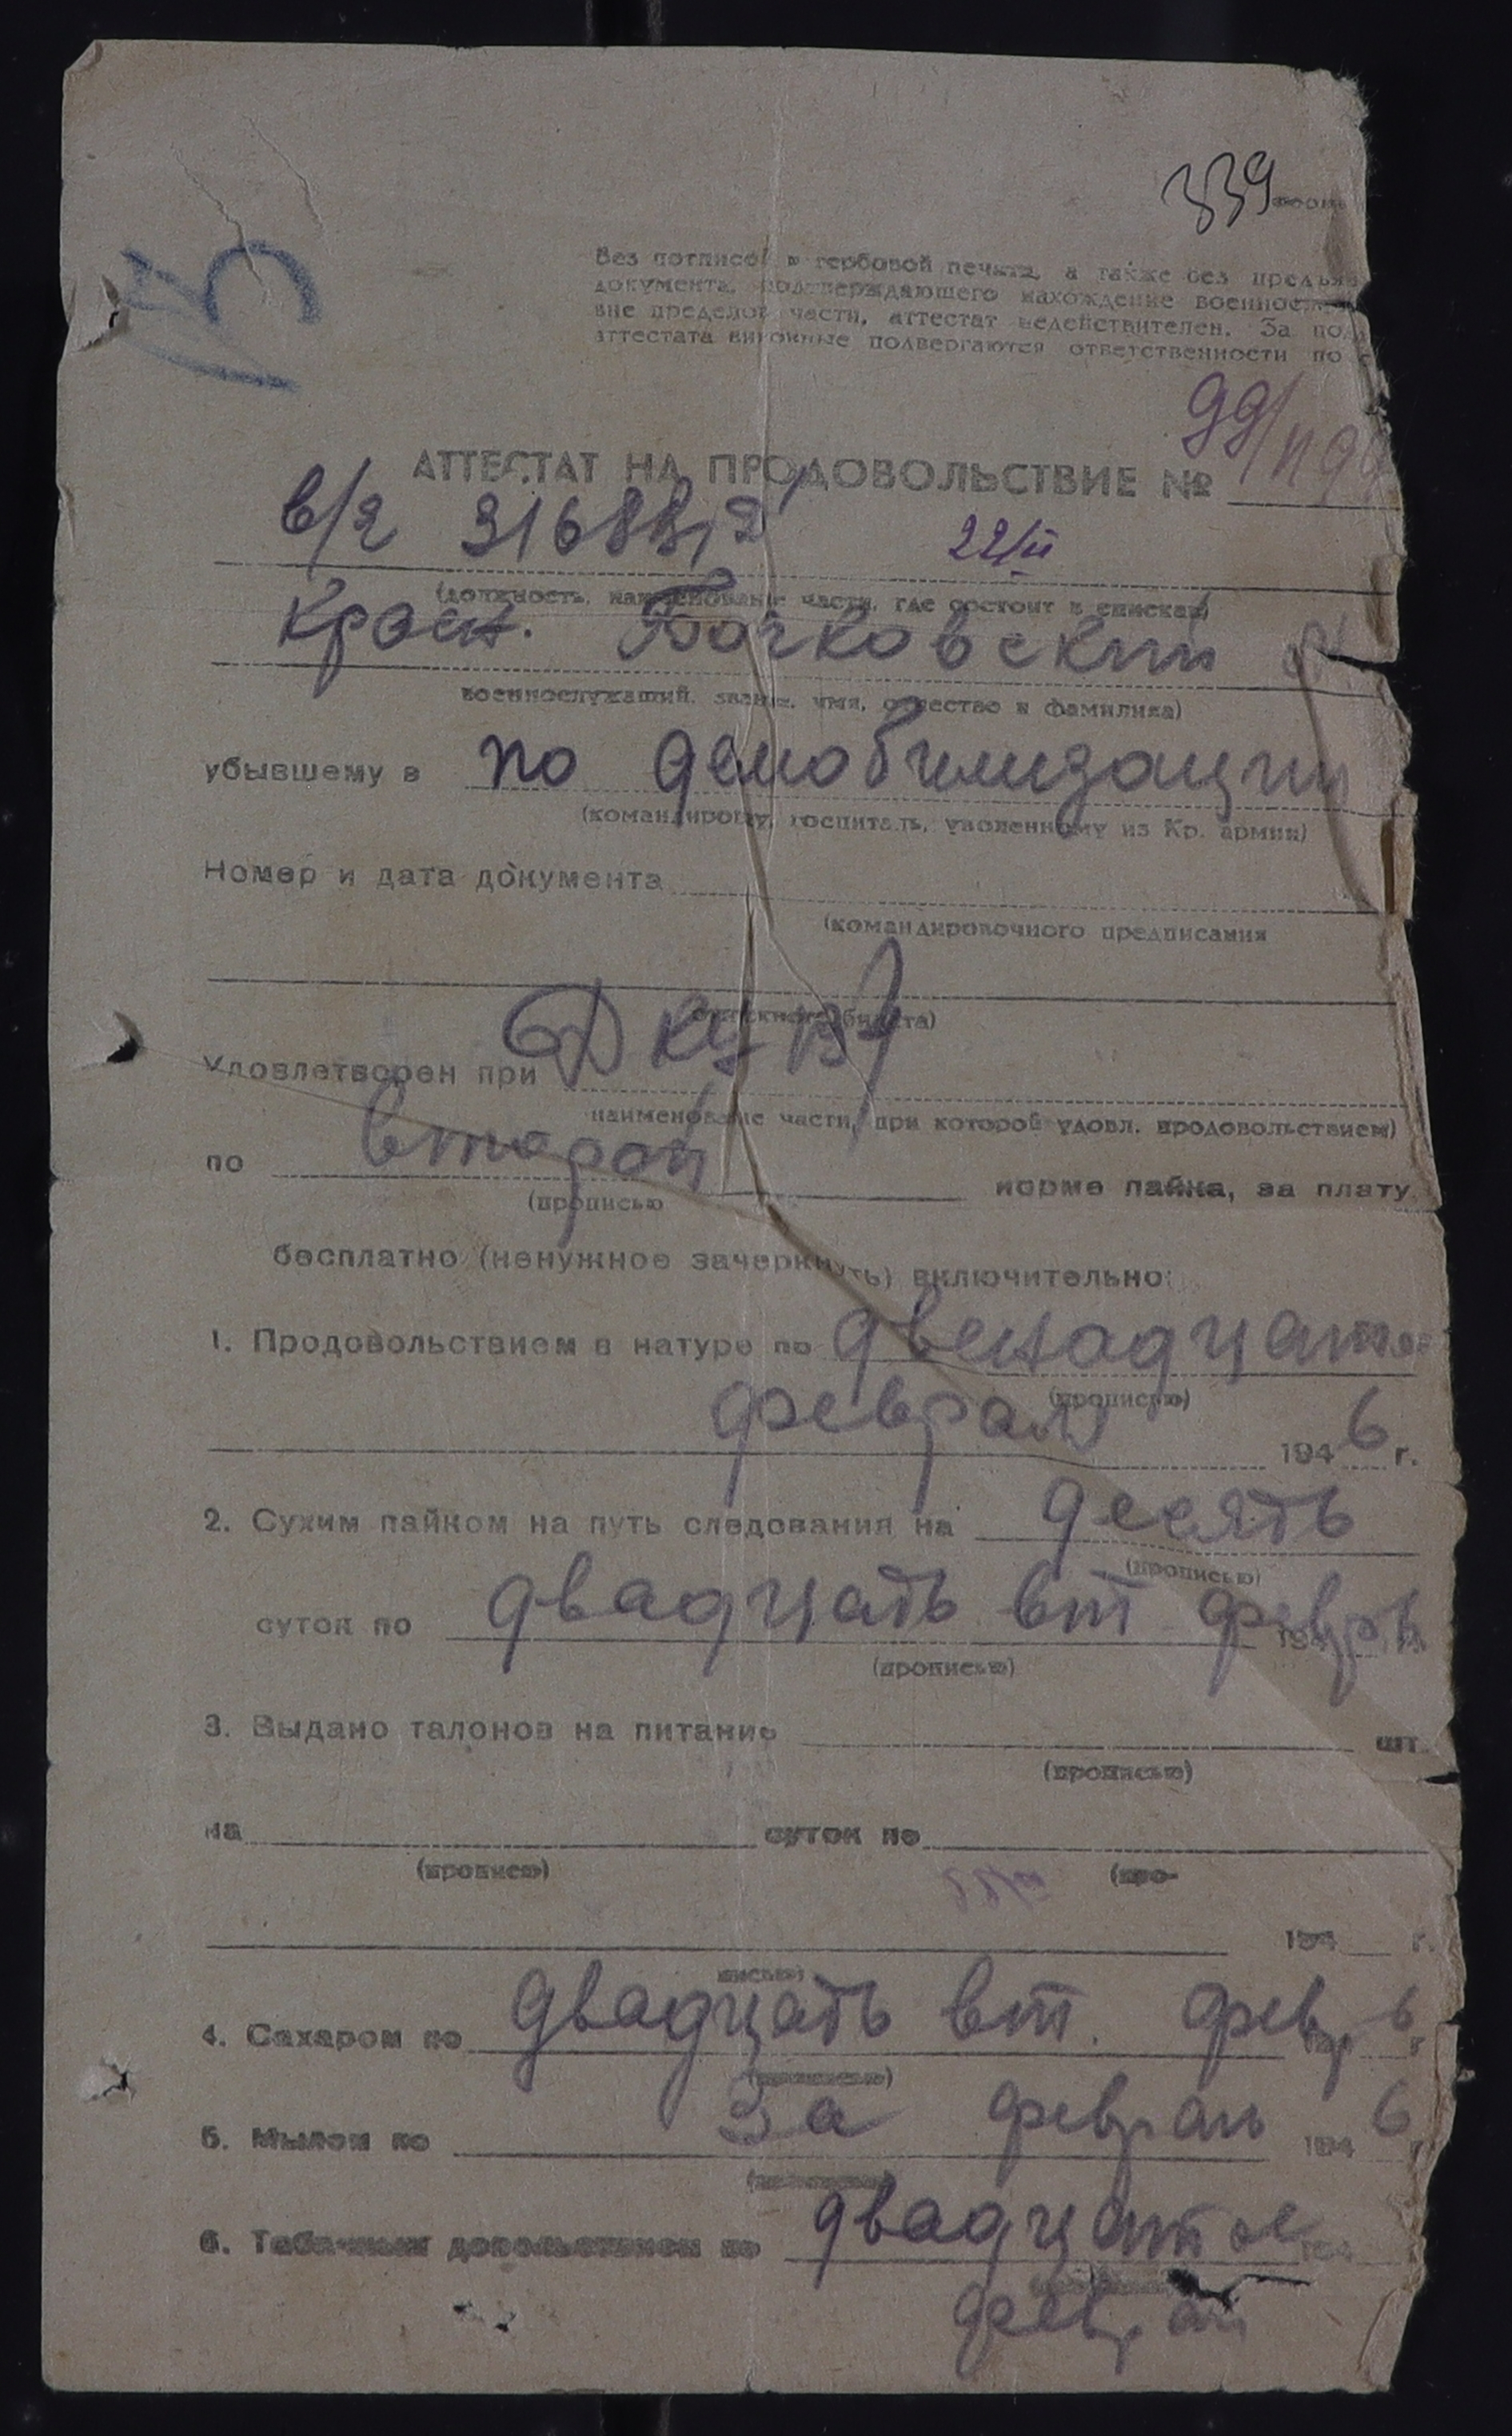 339
Без подписей и гербовой печати, а также без предъяв
документа, подтверждающего нахождение военносл
вне пределов части, аттестат недействителен. За по
аттестата виновные подвергаются ответственности по
АТТЕСТАТ НА ПРОДОВОЛЬСТВИЕ №
в/ч 31688
22/II
(должность, наименование части, где состоит в списках)
Красн. Бочковский
военнослужащий, звание, имя, отчество и фамилия)
убывшему в по демобилизации
(командировку, госпиталь, уволенному из Кр. армии)
Номер и дата документа
(командировочного предписания
отпускного билета)
Удовлетворен при
наименование части, при которой удовл. продовольствием)
по второй норме пайка, за плату,
(прописью
бесплатно (ненужное зачеркнуть) включительно:
1. Продовольствием в натуре по двенадцатое
(прописью)
февраля 1946 г.
2. Сухим пайком на путь следования на десять
(прописью)
суток по двадцать вт февр
(прописью)
3. Выдано талонов на питание шт.
(прописью)
на суток по
(прописью) (про-
194 г.
писью)
4. Сахаром по двадцать вт. фев 6
(прописью)
5. Мылом по за февраль 1946
(прописью)
6. Табачным довольствием по двадцатое 194
феврал